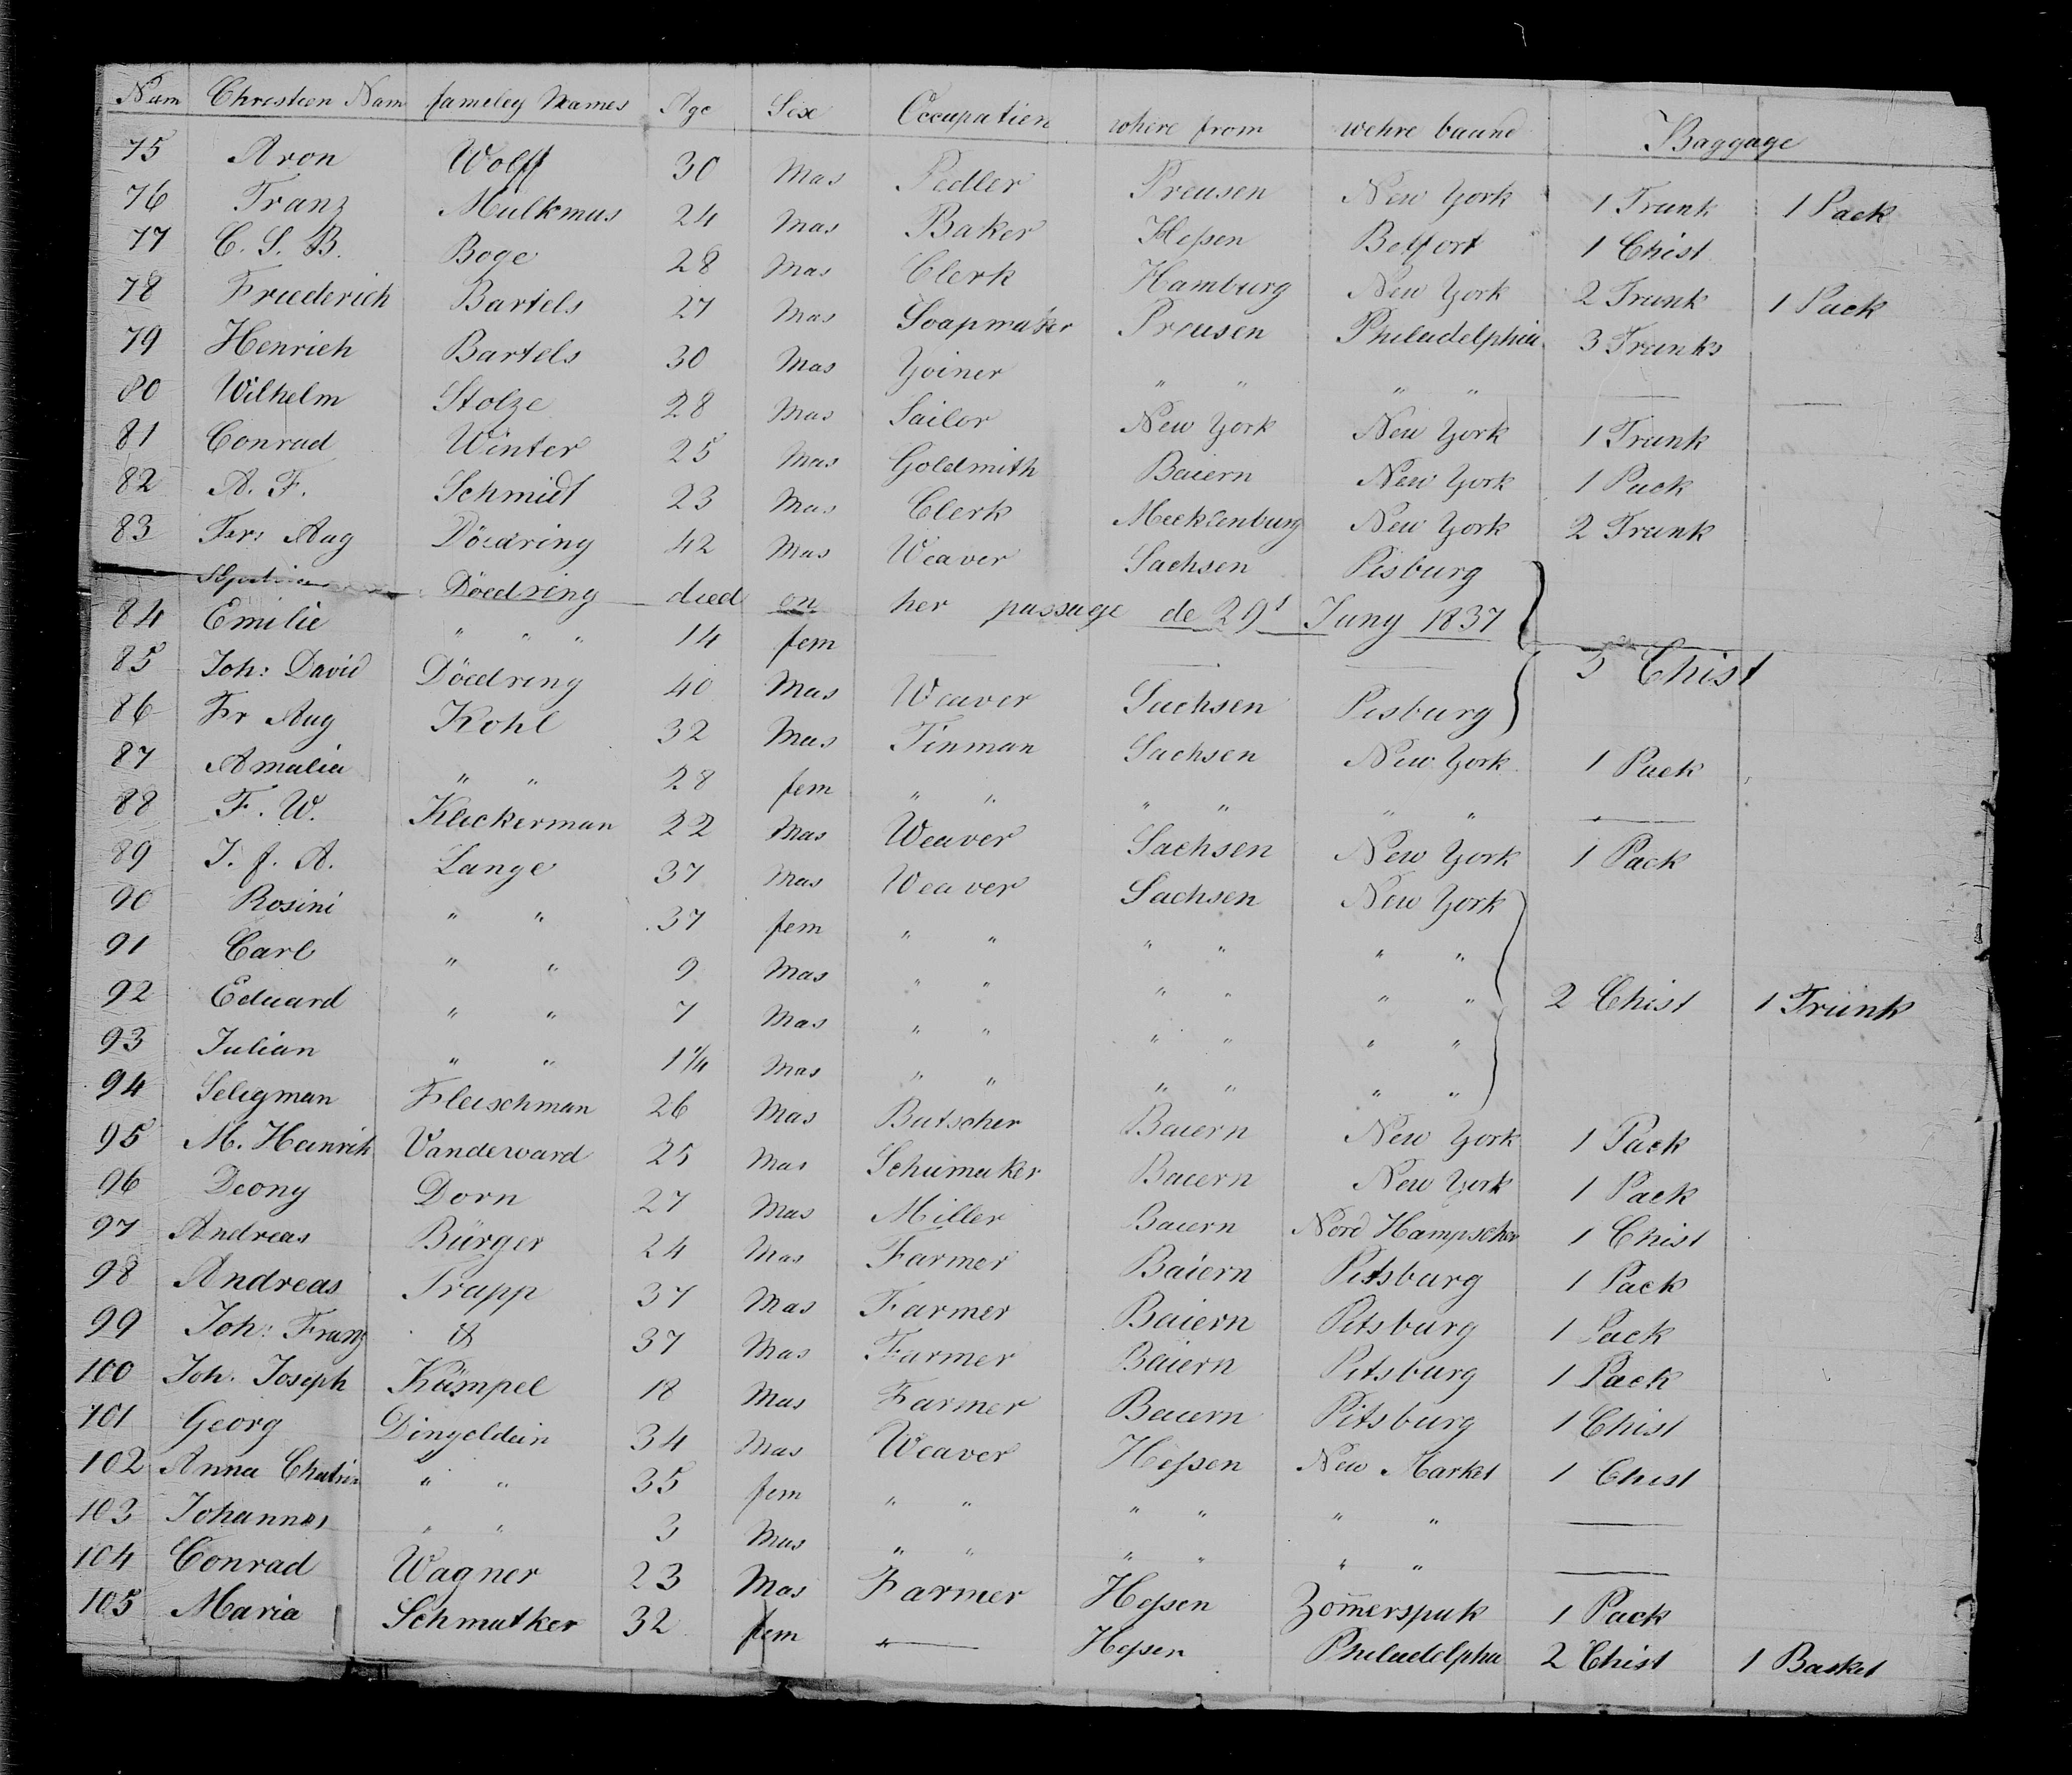 Num Christien Nam fameley Names Age Sex Occupatien where from wehre baund Baggage
75 Aron Wolff 30 Mas Pedler Preusen New York 1 Trunk 1 Pack
76 Franz Mulkmus 24 Mas Baker Heßen Belfort 1 Chist
77 C. S. B. Boge 28 Mas Clerk Hamburg New York 2 Trunk 1 Pack
78 Friederich Bartels 27 Mas Soapmaker Preusen Philadelphia 3 Trunks
79 Henrich Bartels 30 Mas Yoiner " " " " — —
80 Wilhelm Stolze 28 Mas Sailor New York New York 1 Trunk
81 Conrad Winter 25 Mas Goldmith Baiern New York 1 Pack
82 A. F. Schmidt 23 Mas Clerk Mecklenburg New York 2 Trunk
83 Fr: Aug Döedring 42 Mas Weaver Sachsen Pisburg
Döedring died on her passage de 29t Juny 1837
84 Emilie " " " 14 fem — — —
85 Joh: David Döedring 40 Mas Weaver Sachsen Pisburg 5 Chist
86 Fr Aug Kohl 32 Mas Tinman Sachsen New York 1 Pack
87 Amalia " " 28 fem " " " " " " —
88 F. W. Kleckerman 22 Mas Weaver Sachsen New York 1 Pack
89 J. f. A. Lange 37 Mas Weaver Sachsen New York
90 Rosini " " 37 fem " " " " " "
91 Carl " " 9 Mas " " " " " "
92 Eduard " " 7 Mas " " " " " " 2 Chist 1 Trunk
93 Julian " " 1 1/4 Mas " " " " " "
94 Seligman Fleischman 26 Mas Butscher Baiern New York 1 Pack
95 M. Heinrih Vandeward 25 Mas Schumaker Baiern New York 1 Pack
96 Deony Dorn 27 Mas Miller Baiern Nord Hampscher 1 Chist
97 Andreas Bürger 24 Mas Farmer Baiern Pitsburg 1 Pack
98 Andreas Trapp 37 Mas Farmer Baiern Pitsburg 1 Pack
99 Joh: Franz 37 Mas Farmer Baiern Pitsburg 1 Pack
100 Joh. Joseph Kämpel 18 Mas Farmer Baiern Pitsburg 1 Chist
101 Georg Dingeldein 34 Mas Weaver Heßen New Market 1 Chist
102 Anna Chatrin " " 35 fem " " " " " " —
103 Johannes " " 3 Mas " " " " " " —
104 Conrad Wagner 23 Mas Farmer Heßen Zom̅erspuk 1 Pack
105 Maria Schmutker 32 fem — Heßen Philadelphia 2 Chist 1 Basket